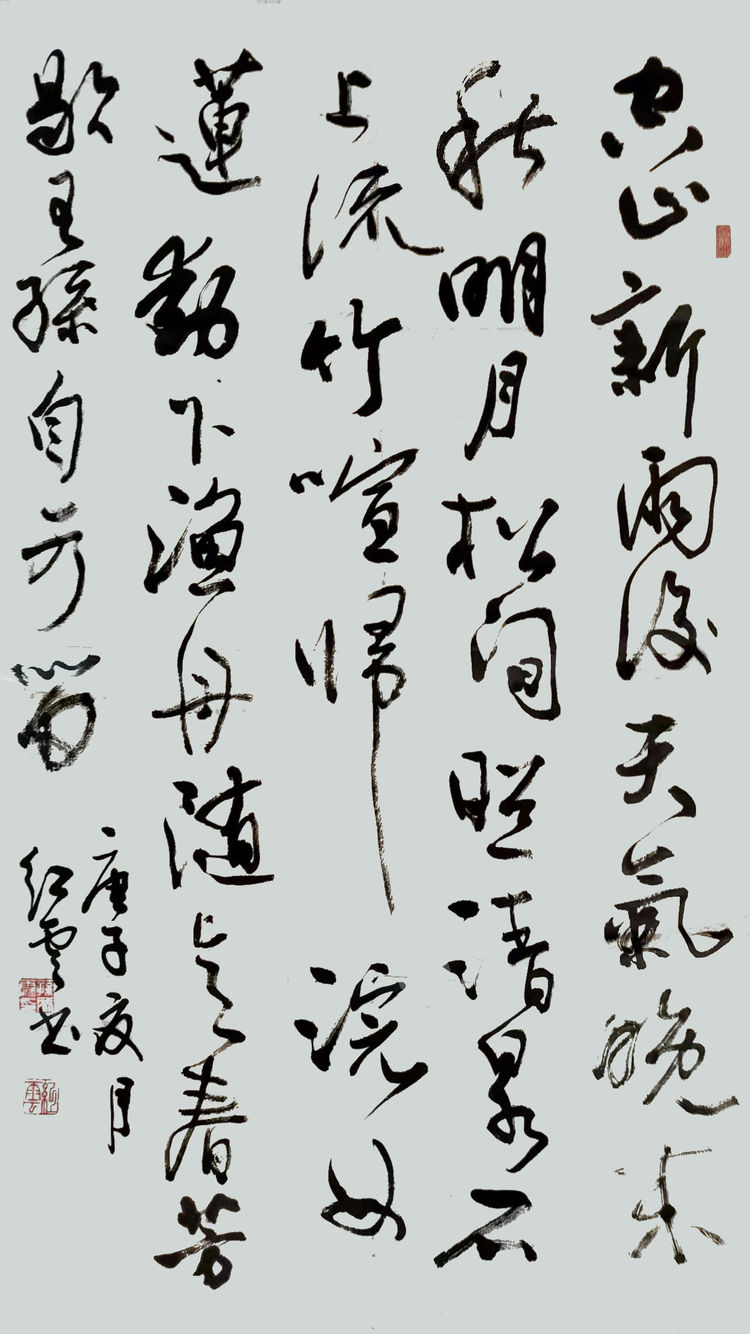 空山新雨後天氣晚來
秋明月松间照清泉石
上流竹喧歸浣女
蓮動下漁舟随意春芳
歇王孫自可留
庚子夏月
红雲书